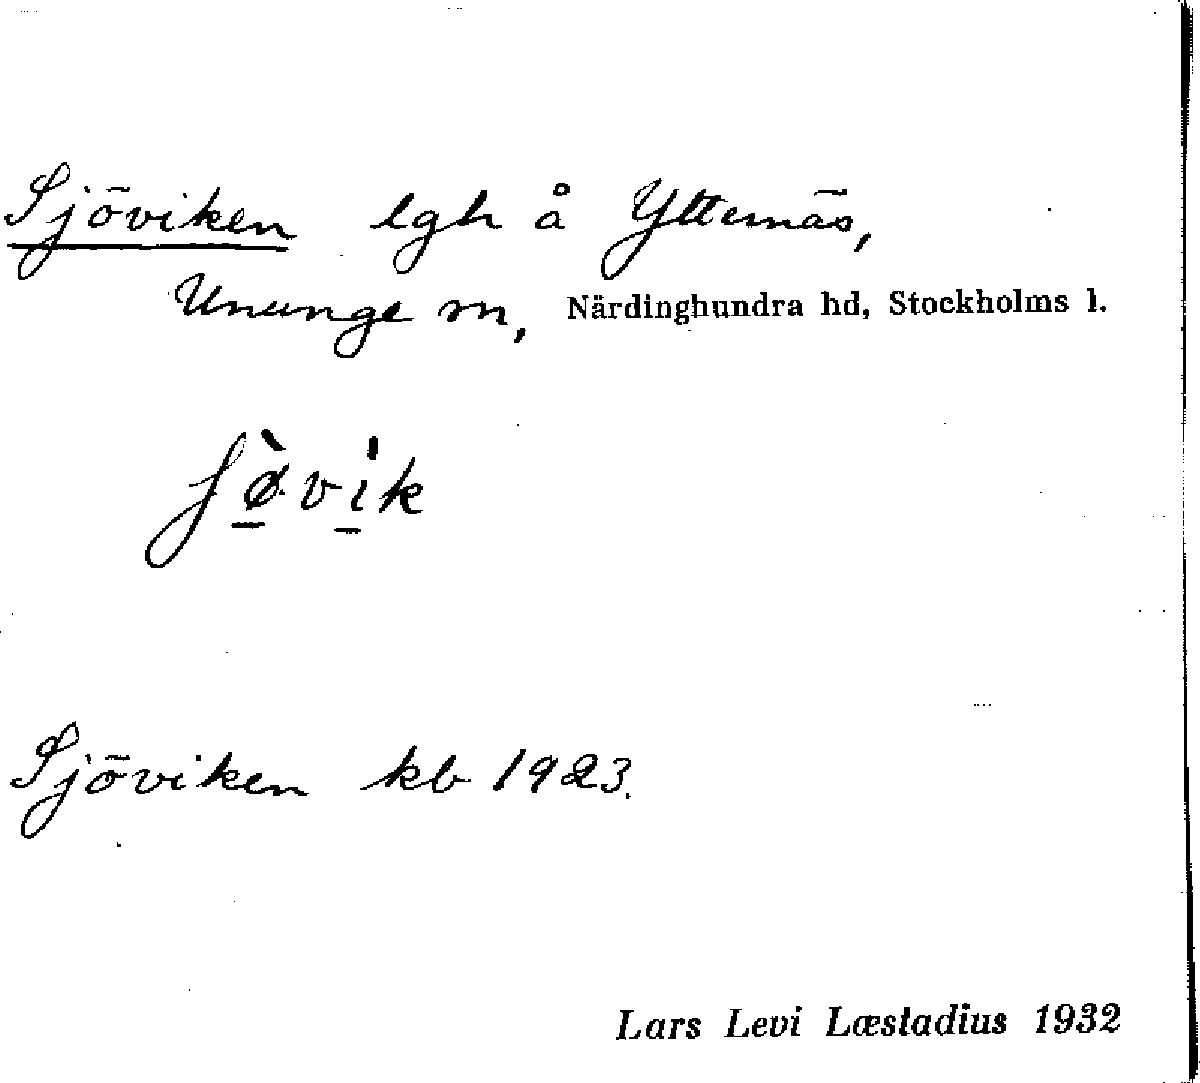 Sjöviken lgh å Ytternäs,
Ununge sn, Närdinghundra hd, Stockholms l.
ʃø̠̀vi̠̍k
Sjöviken kb 1923.
Lars Levi Læstadius 1932